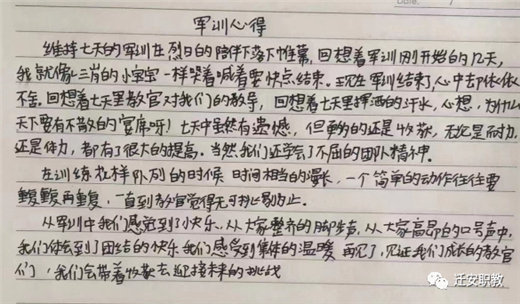 Date.
军训心得
维持七天的军训在烈日的陪伴下落下帷幕,回想着军训刚开始的几天,
我就像三岁的小宝宝一样哭着喊着要快点结束。现在军训结束了,心中却依依
不舍。回想着七天里教官对我们的教导,回想着七天里挥洒的汗水,心想,为什么
天下要有不散的宴席呀!七天中虽然有遗憾,但更多的还是收获,无论是耐力,
还是体力,都有了很大的提高。当然我们还学会了不屈的团队精神。
在训练花样队列的时候,时间相当的漫长,一个简单的动作往往要
重复重复再重复,一直到教官觉得无可挑剔为止。
从军训中我们感觉到了快乐。从大家整齐的脚步声,从大家高昂的口号声中,
我们体会到了团结的快乐,我们感受到集体的温暖。再见了,见证我们成长的教官
们,我们会带着收获去迎接未来的挑战
迁安职教